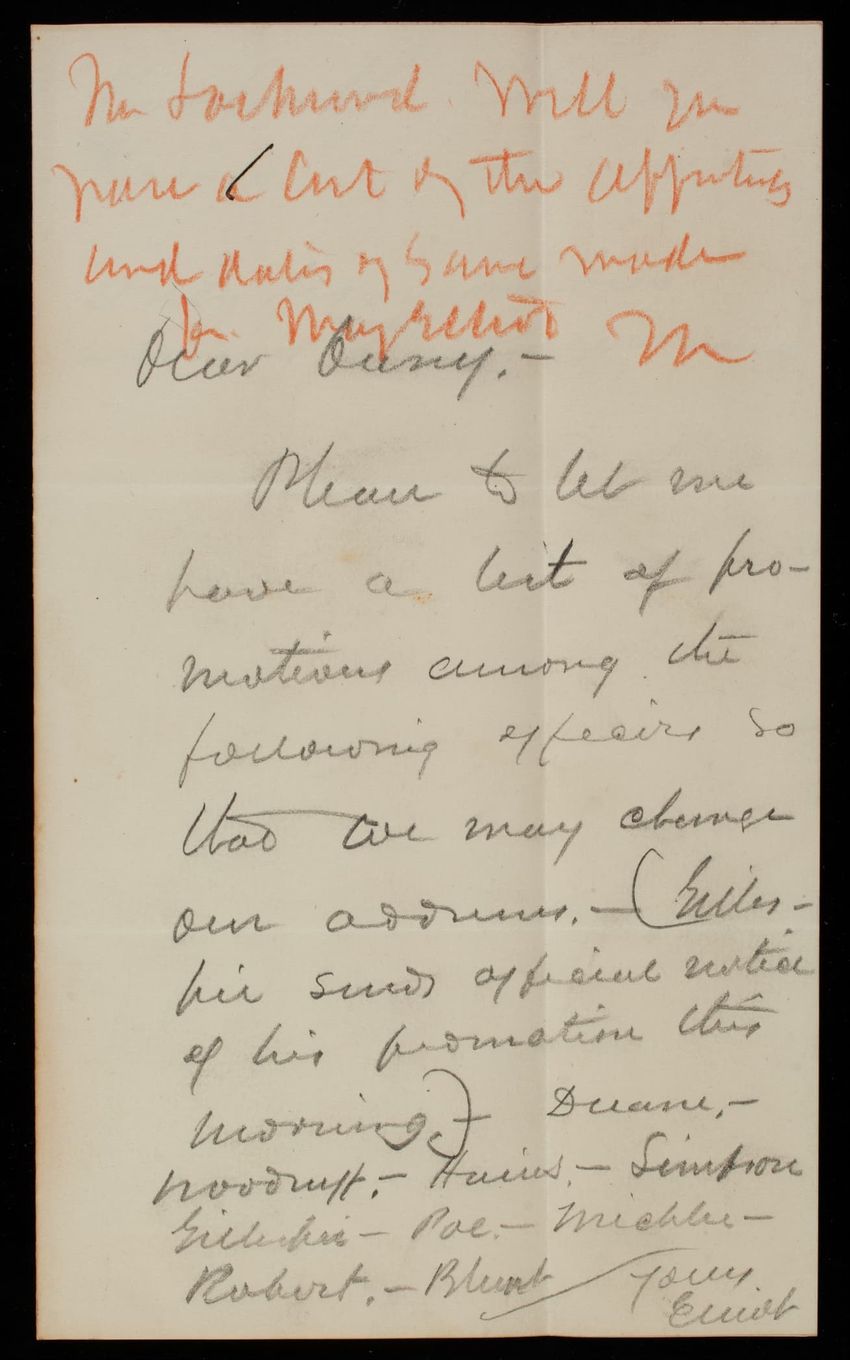 Mr Lockwood. Will you
have a list of the appointees
and dates of same made
for Maj Elliot M
Dear Casey, -
Please to let me
have a list of pro-
motions among the
following officers so
that we may change
our address. - (Gilles-
pie sends official notice
of his promotion this
morning) - Duane, -
Woodruff, - Hains, - Simpson
Gillespie - Poe. - Michler -
Robert, - Blunt Yours
Elliot